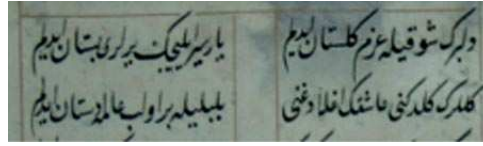 دلبرک شوقیله عزم کلستان ایدلم یار سیر ایلیجک یرلری بستان ایدلم
کلدرک کلدکنی عاشقک اغلادغنی بلبلیله براولب عالمه دستان ایدلم